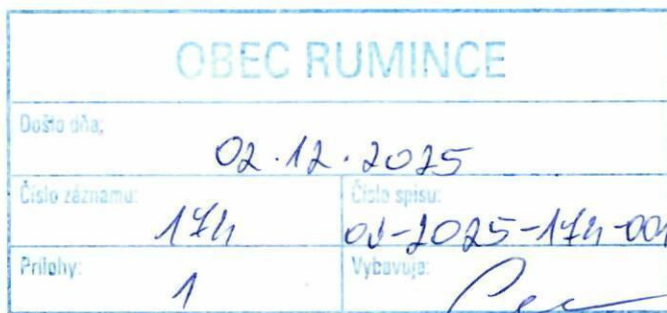 OBEC RUMINCE
Došlo dňa:
02.12.2025
Číslo záznamu: Číslo spisu:
174 OU-2025-174-001
Prílohy: Vybavuje:
1